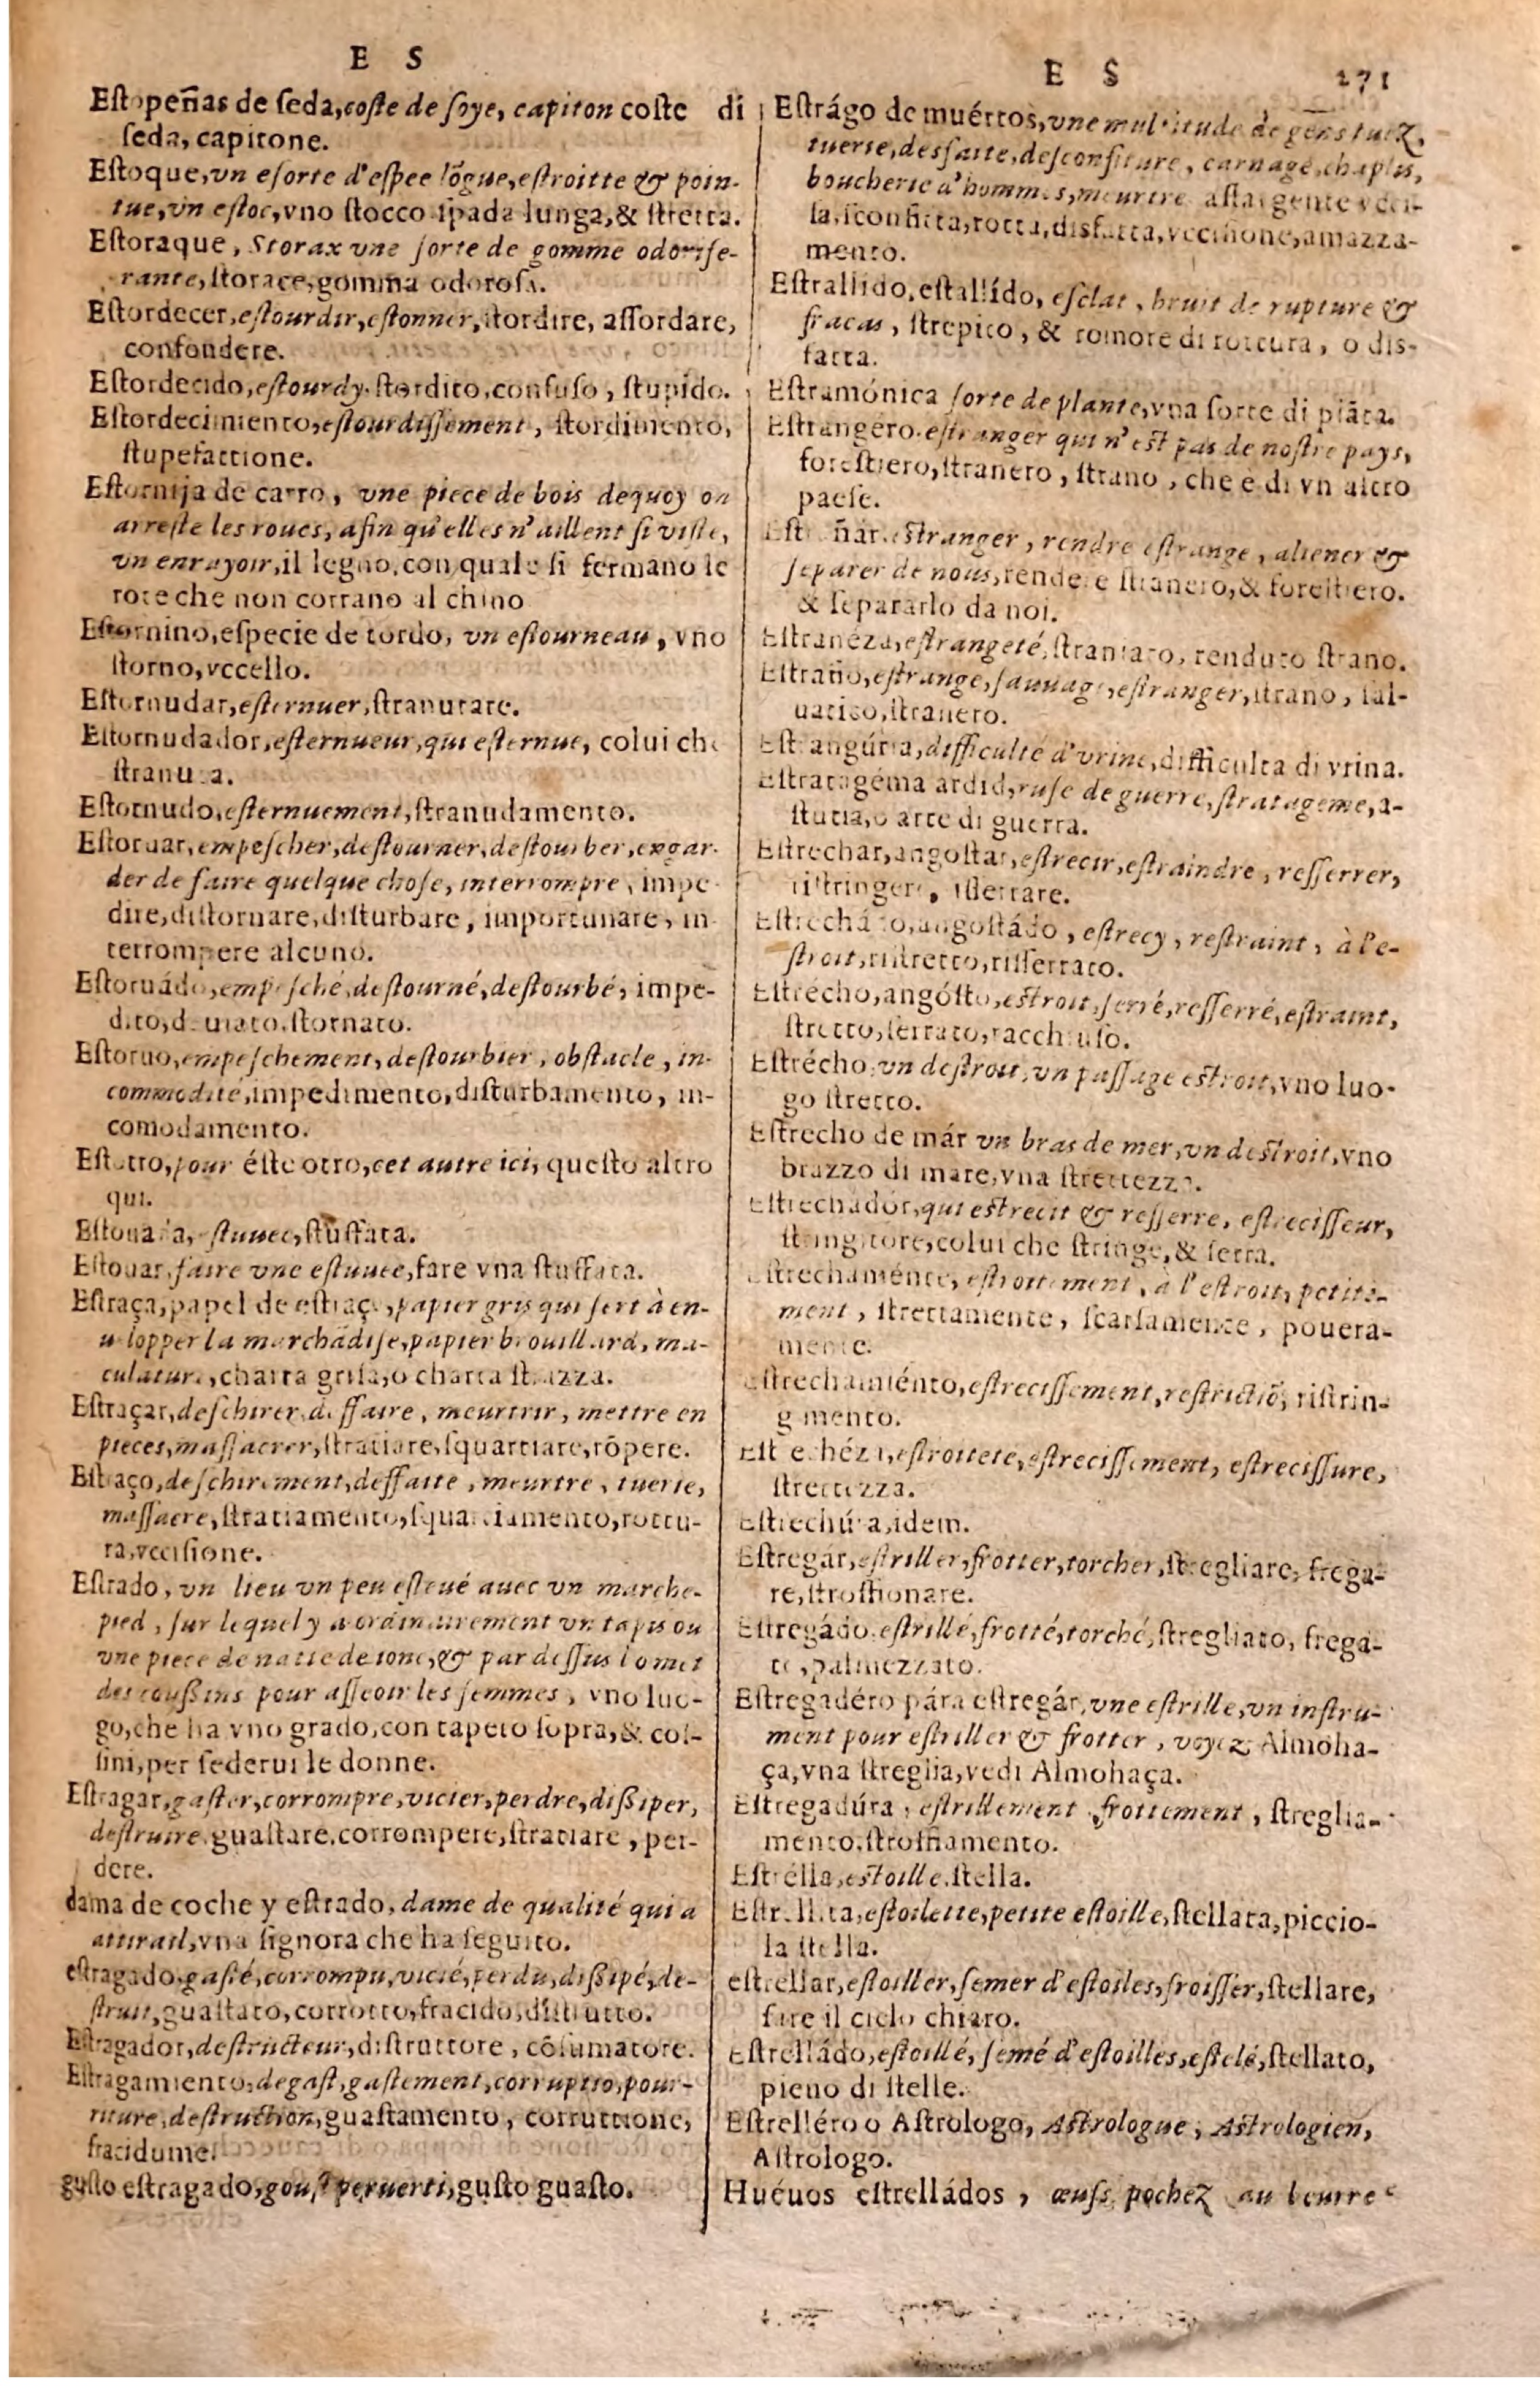 E S
Estopeñas de seda, coste de soye, capiton coste di
seda, capitone.
Estoque, vn esorte d'espee lõgue, estroitte & poin-
tue, vn estoc, vno stocco spada lunga, & stretta.
Estoraque, Storax vne sorte de gomme odorife-
rante, storace, gomma odorosa.
Estordecer, estourdir, estonner, stordire, assordare,
confondere.
Estordecido, estourdy. stordito, confuso, stupido.
Estordecimiento, estourdissement, stordimento,
stupefattione.
Estornija de carro, vne piece de bois dequoy on
arreste les roues, afin qu'elles n'aillent si viste,
vn enrayoir, il legno, con quale si fermano le
rote che non corrano al chino
Estornino, especie de tordo, vn estourneau, vno
storno, vccello.
Estornudar, esternuer, stranutare.
Estornudador, esternueur, qui esternue, colui che
stranuta.
Estornudo, esternuement, stranudamento.
Estoruar, empescher, destourner, destourber, engar-
der de faire quelque chose, interrompre, impe-
dire, distornare, disturbare, importunare, in-
terrompere alcuno.
Estoruádo, empesché, destourné, destourbé, impe-
dito, deuiato, stornato.
Estoruo, empeschement, destourbier, obstacle, in-
commodité, impedimento, disturbamento, in-
comodamento.
Estotro, pour éste otro, cet autre ici, questo altro
qui.
Estouada, estuuee, stuffata.
Estouar, faire vne estuuee, fare vna stuffata.
Estraça, papel de estraça, papier gris qui sert à en-
uelopper la marchãdise, papier brouillard, ma-
culature, charta grisa, o charta strazza.
Estraçar, deschirer, deffaire, meurtrir, mettre en
pieces, massacrer, stratiare, squartiare, rõpere.
Estraço, deschirement, deffaite, meurtre, tuerie,
massacre, stratiamento, squartiamento, rottu-
ra, vccisione.
Estrado, vn lieu vn peu esleué auec vn marche-
pied, sur lequel y a ordinairement vn tapis ou
vne piece de natte de ionc, & par dessus l'omet
des coußins pour asseoir les femmes, vno luo-
go, che ha vno grado, con tapeto sopra, & cos-
sini, per sederui le donne.
Estragar, gaster, corrompre, vicier, perdre, dißiper,
destruire. guastare, corrompere, stratiare, per-
dere.
dama de coche y estrado, dame de qualité qui a
attirail, vna signora che ha seguito.
estragado, gasté, corrompu, vicié, perdu, dißipé, de-
struit, guastato, corrotto, fracido, distrutto.
Estragador, destructeur, distruttore, cõsumatore.
Estragamiento, degast, gastement, corruptio, pour-
riture, destruction, guastamento, corruttione,
fracidume.
gusto estragado, goust peruerti, gusto guasto.
E S 271
Estrágo de muértos, vne multitude de gens tuez,
tuerie, desfaite, desconfiture, carnage, chaplis,
boucherie d'hommes, meurtre assai gente vcci-
sa, sconfitta, rotta, disfatta, vccisione, amazza-
mento.
Estrallido, estallído, esclat, bruit de rupture &
fracas, strepito, & romore di rottura, o dis-
fatta.
Estramónica sorte de plante, vna sorte di piãta.
Estrangero. estranger qui n'est pas de nostre pays,
forestiero, stranero, strano, che è di vn altro
paese.
Estrañár. estranger, rendre estrange, aliener &
separer de nous, rendere stranero, & forestiero.
& separarlo da noi.
Estranéza, estrangeté, straniato, renduto strano.
Estraño, estrange, sauuage, estranger, strano, sal-
uatico, stranero.
Estrangúria, difficulté d'vrine, difficulta di vrina.
Estratagéma ardid, ruse de guerre, stratageme, a-
stutia, o arte di guerra.
Estrechar, angostar, estrecir, estraindre, resserrer,
ristringere, isserrare.
Estrechádo, angostádo, estrecy, restraint, à l'e-
stroit, ristretto, risserrato.
Estrécho, angósto, estroit, serré, resserré, estraint,
stretto, serrato, racchiuso.
Estrécho. vn destroit, vn passage estroit, vno luo-
go stretto.
Estrecho de már vn bras de mer, vn destroit, vno
brazzo di mare, vna strettezza.
Estrechadór, qui estrecit & resserre, estrecisseur,
stringitore, colui che stringe, & serra.
Estrechaménte, estroittement, à l'estroit, petite-
ment, strettamente, scarsamente, pouera-
mente.
Estrechamiénto, estrecissement, restrictiõ, ristrin-
gimento.
Estrechéza, estroittete, estrecissement, estrecissure,
strettezza.
Estrechúra, idem.
Estregár, estriller, frotter, torcher, stregliare, frega-
re, stroffionare.
Estregádo. estrillé, frotté, torché, stregliato, frega-
to, palmezzato.
Estregadéro pára estregár, vne estrille, vn instru-
ment pour estriller & frotter, voyez Almoha-
ça, vna streglia, vedi Almohaça.
Estregadúra, estrillement, frottement, streglia-
mento, stroffiamento.
Estrélla, estoille. stella.
Estrellita, estoilette, petite estoille, stellata, piccio-
la stella.
estrellar, estoiller, semer d'estoiles, froisser, stellare,
fare il cielo chiaro.
Estrelládo, estoillé, semé d'estoilles, estelé, stellato,
pieno di stelle.
Estrelléro o Astrologo, Astrologue, Astrologien,
Astrologo.
Huéuos estrelládos, œufs pochez au beurre